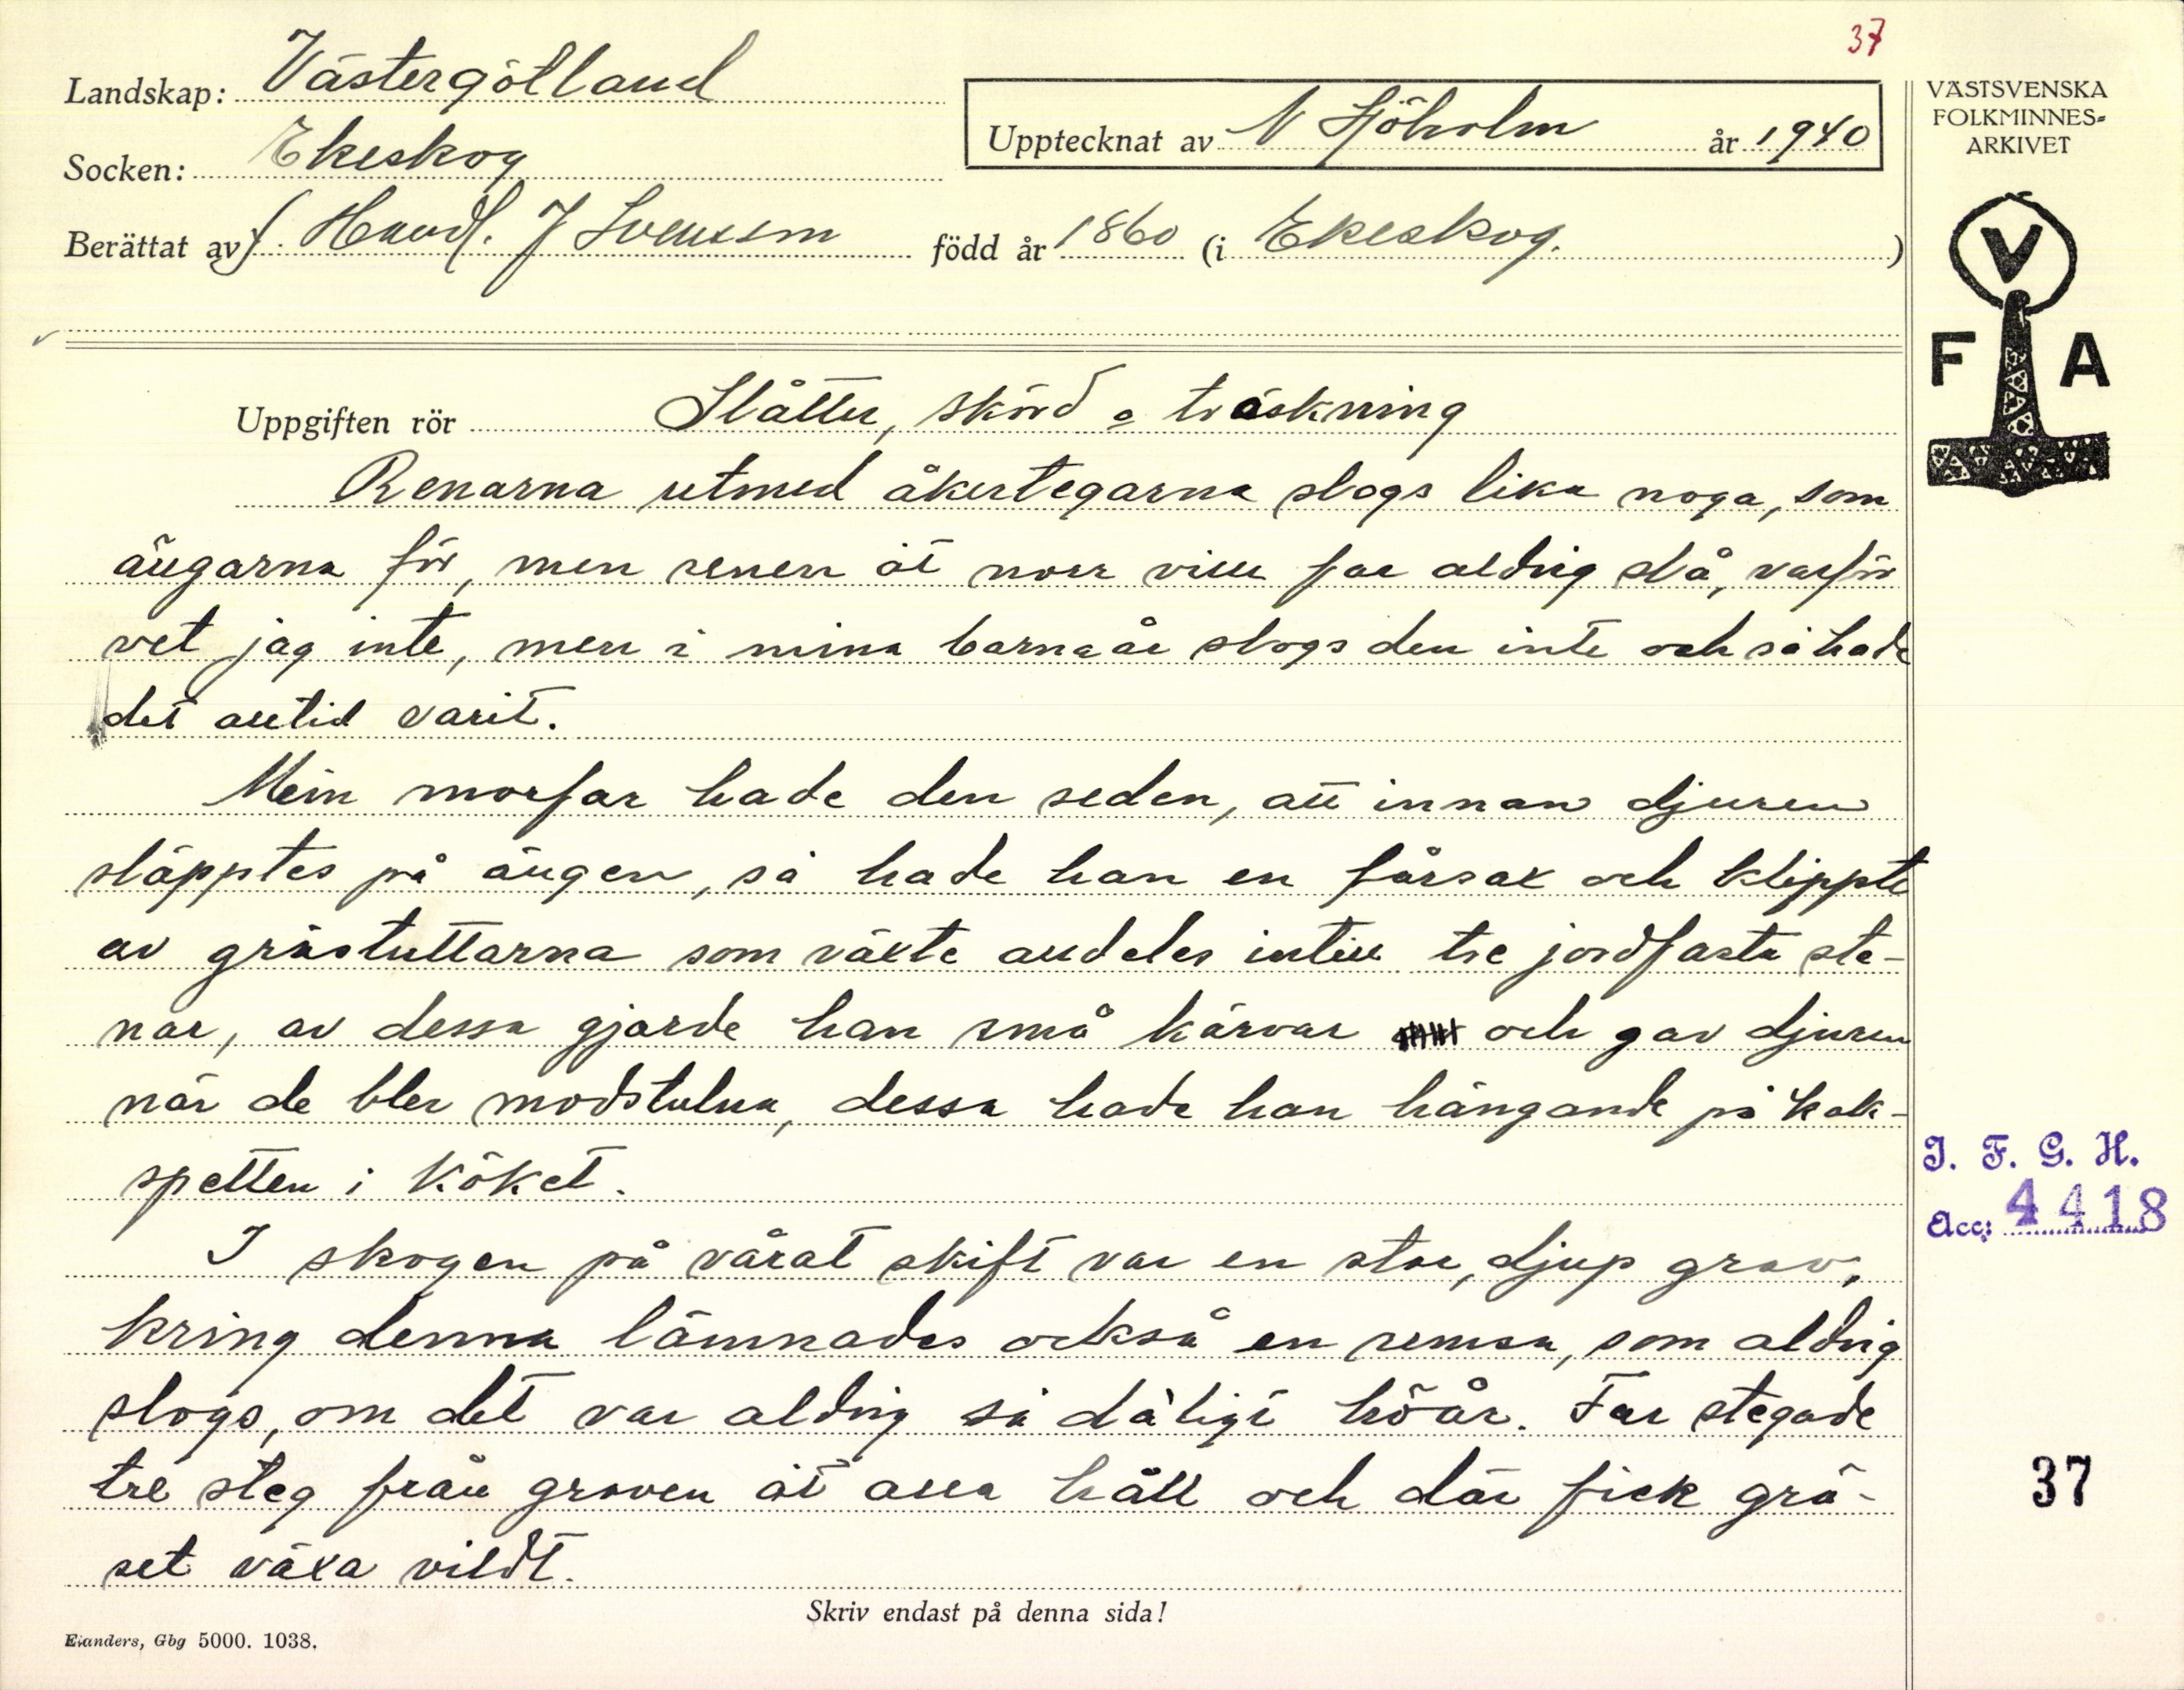 37
Landskap: Västergötland
Socken: Ekeskog
Upptecknat av N Sjöholm år 1940
Berättat av f. Handl. J Svensson född år 1860 (i Ekeskog. )
VÄSTSVENSKA
FOLKMINNES-
ARKIVET
V
F A
Uppgiften rör Slåtter, skörd o träskning
Renarna utmed åkertegarna slogs lika noga, som
ängarna för, men renen åt norr ville far aldrig slå, varför
vet jag inte, men i mina barnaår slogs den inte och så hade
det alltid varit.
Min morfar hade den seden, att innan djuren
släpptes på ängen, så hade han en fårsax och klippte
av grästuttarna som växte alldeles intill tre jordfasta ste-
nar, av dessa gjorde han små kärvar och gav djuren
när de blev modstulna, dessa hade han hängande på kak-
spetten i köket.
I skogen på vårat skift var en stor, djup grav,
kring denna lämnades också en remsa, som aldrig
slogs, om det var aldrig så dåligt höår. Far stegade
tre steg från graven åt alla håll och där fick grä-
set växa vildt.
Skriv endast på denna sida!
Elanders, Gbg 5000. 1038.
I. F. G. H.
Acc: 4418
37